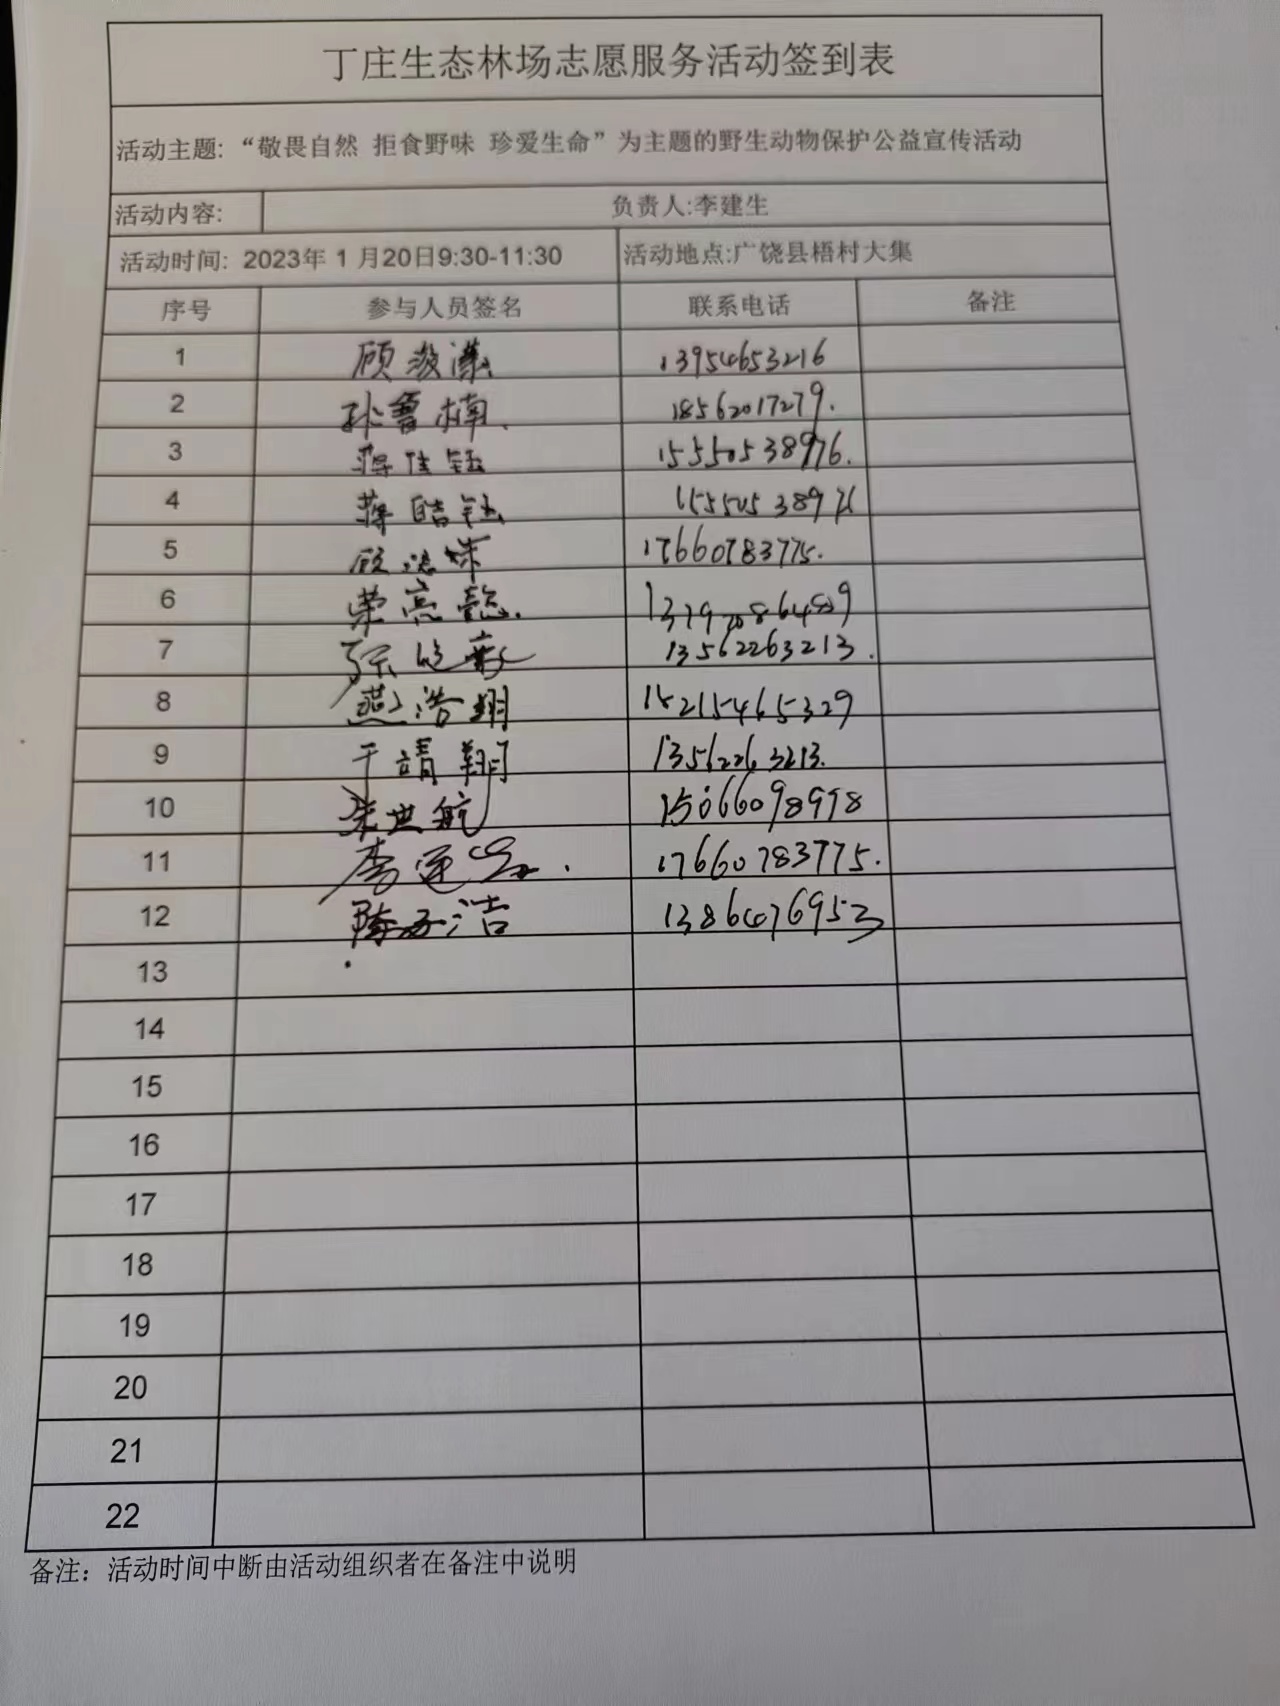 丁庄生态林场志愿服务活动签到表
活动主题: “敬畏自然 拒食野味 珍爱生命”为主题的野生动物保护公益宣传活动
活动内容: 负责人:李建生
活动时间: 2023年 1 月20日9:30-11:30 活动地点:广饶县梧村大集
序号 参与人员签名 联系电话 备注
1 顾 13954653216
2 孙曹楠 18562017279.
3 蒋佳钰 15550538976.
4 蒋皓钰
5 17660783775.
6 荣亮懿.
7 13562263213.
8 燕浩翔 15215465329
9 于靖翔 13562263213.
10 朱世航 15066098998
11 李 17660783775.
12 陈子洁 13864076953
13
14
15
16
17
18
19
20
21
22
备注：活动时间中断由活动组织者在备注中说明